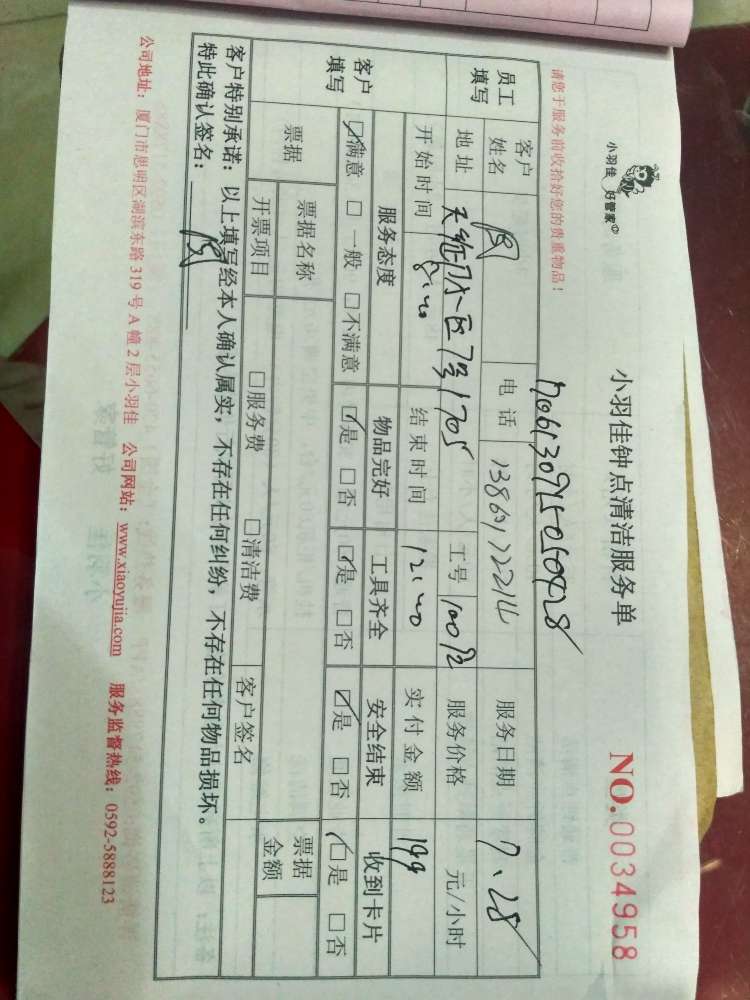 小羽佳 好管家
小羽佳钟点清洁服务单
NO.0034958
请您于服务前收拾好您的贵重物品!
员工填写
客户姓名 电话 服务日期 7.28
地址 工号 服务价格 元/小时
开始时间 8:00 结束时间 12:00 实付金额 199
客户填写
服务态度 物品完好 工具齐全 安全结束 收到卡片
☑满意 □一般 □不满意 ☑是 □否 ☑是 □否 ☑是 □否 ☑是 □否
票据 票据名称 票据金额
开票项目 □服务费 □清洁费 客户签名
客户特别承诺:以上填写经本人确认属实,不存在任何纠纷,不存在任何物品损坏。
特此确认签名:
公司地址:厦门市思明区湖滨东路319号A幢2层小羽佳 公司网站:www.xiaoyujia.com 服务监督热线:0592-5888123